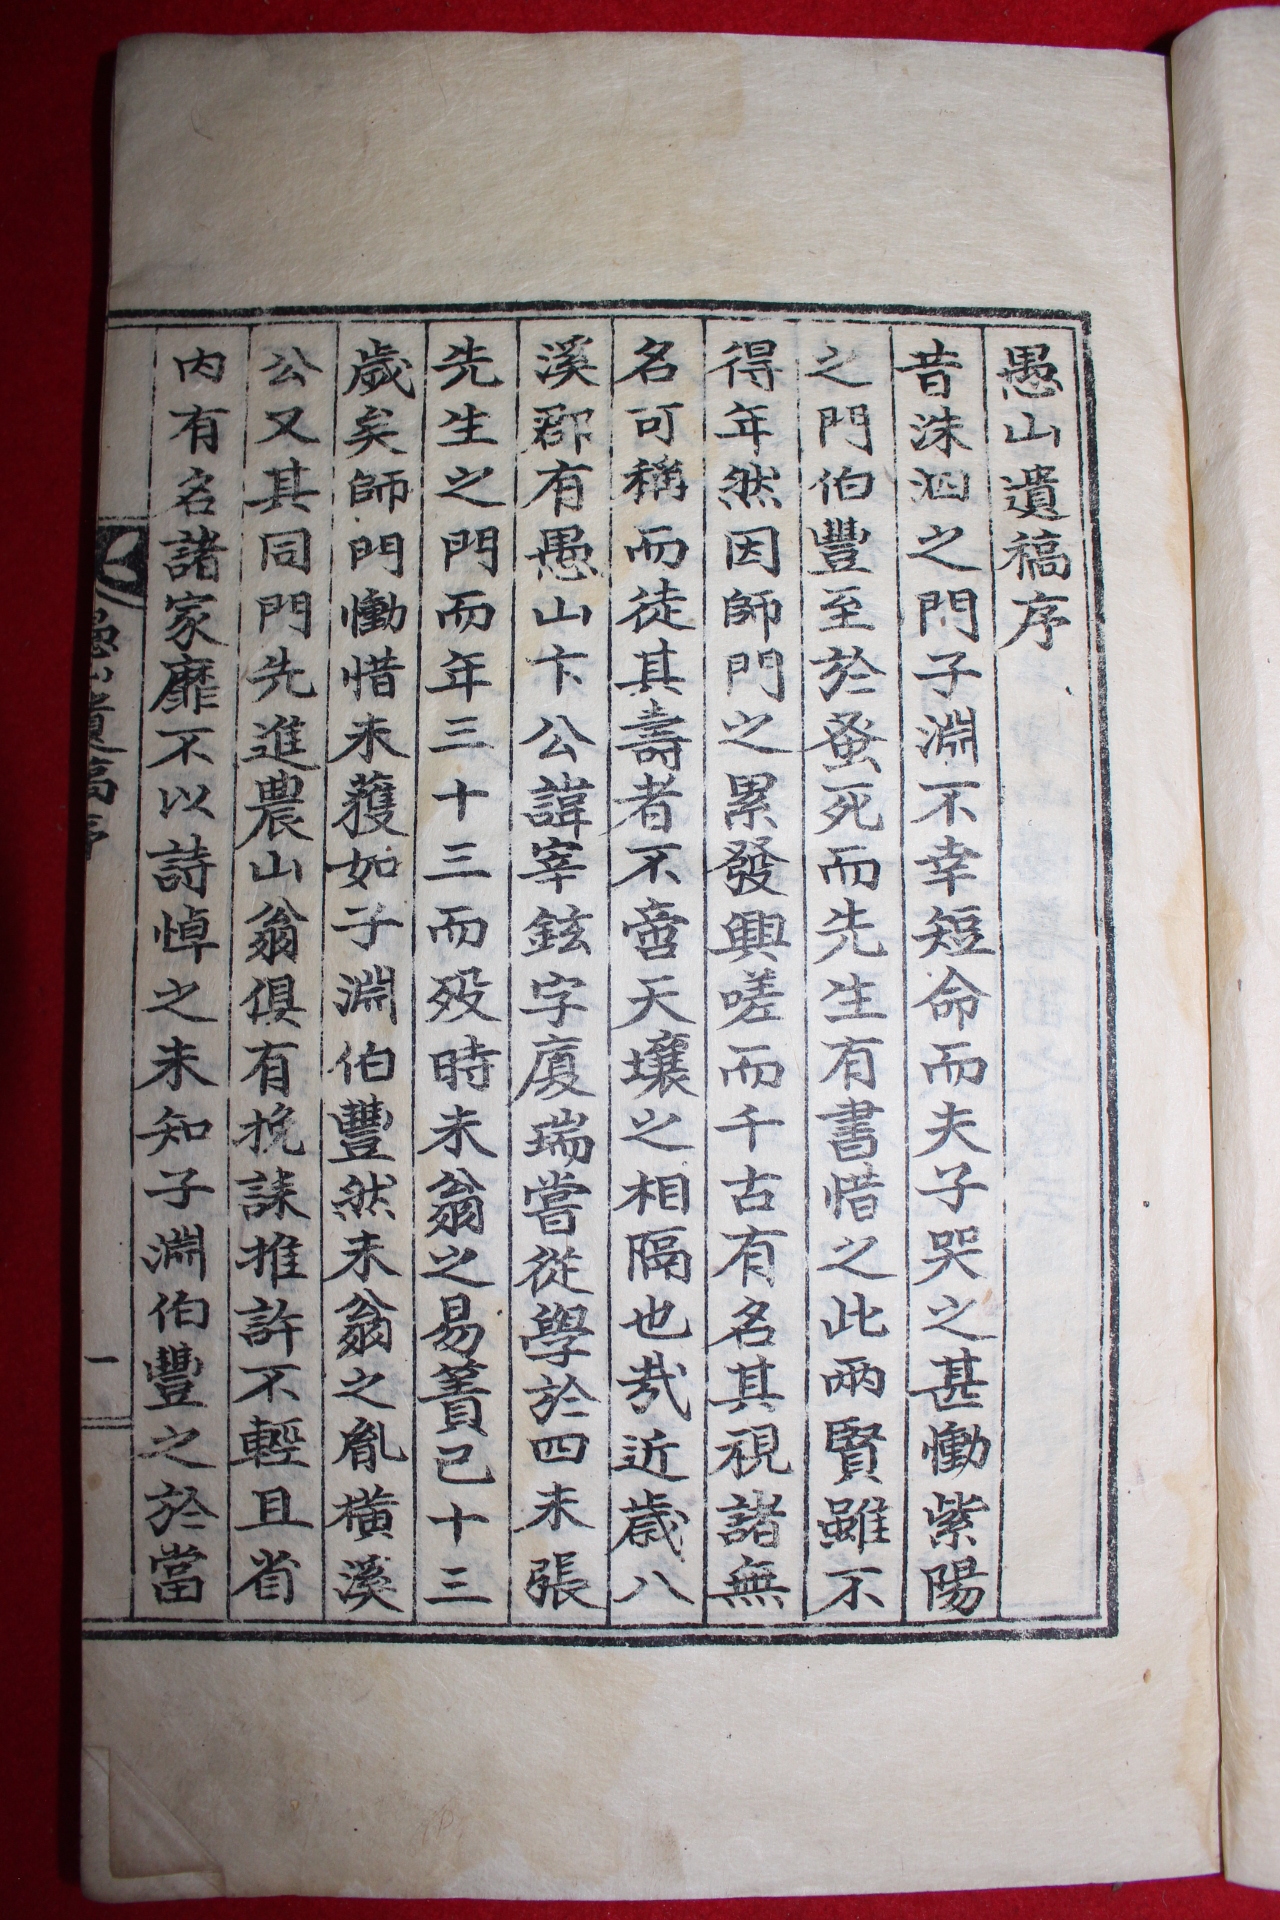 愚山遺稿序
昔洙泗之門子淵不幸短命而夫子哭之甚慟紫陽
之門伯豐至於蚤死而先生有書惜之此兩賢雖不
得年然因師門之累發興嗟而千古有名其視諸無
名可稱而徒其壽者不啻天壤之相隔也哉近歲八
溪郡有愚山卞公諱宰鉉字廈瑞嘗從學於四未張
先生之門而年三十三而歿時未翁之易簀已十三
歲矣師門慟惜未蒦如子淵伯豐然未翁之胤橫溪
公又其同門先進農山翁俱有挽誄推許不輕且省
內有名諸家靡不以詩悼之未知子淵伯豐之於當
愚山遺稿序
一